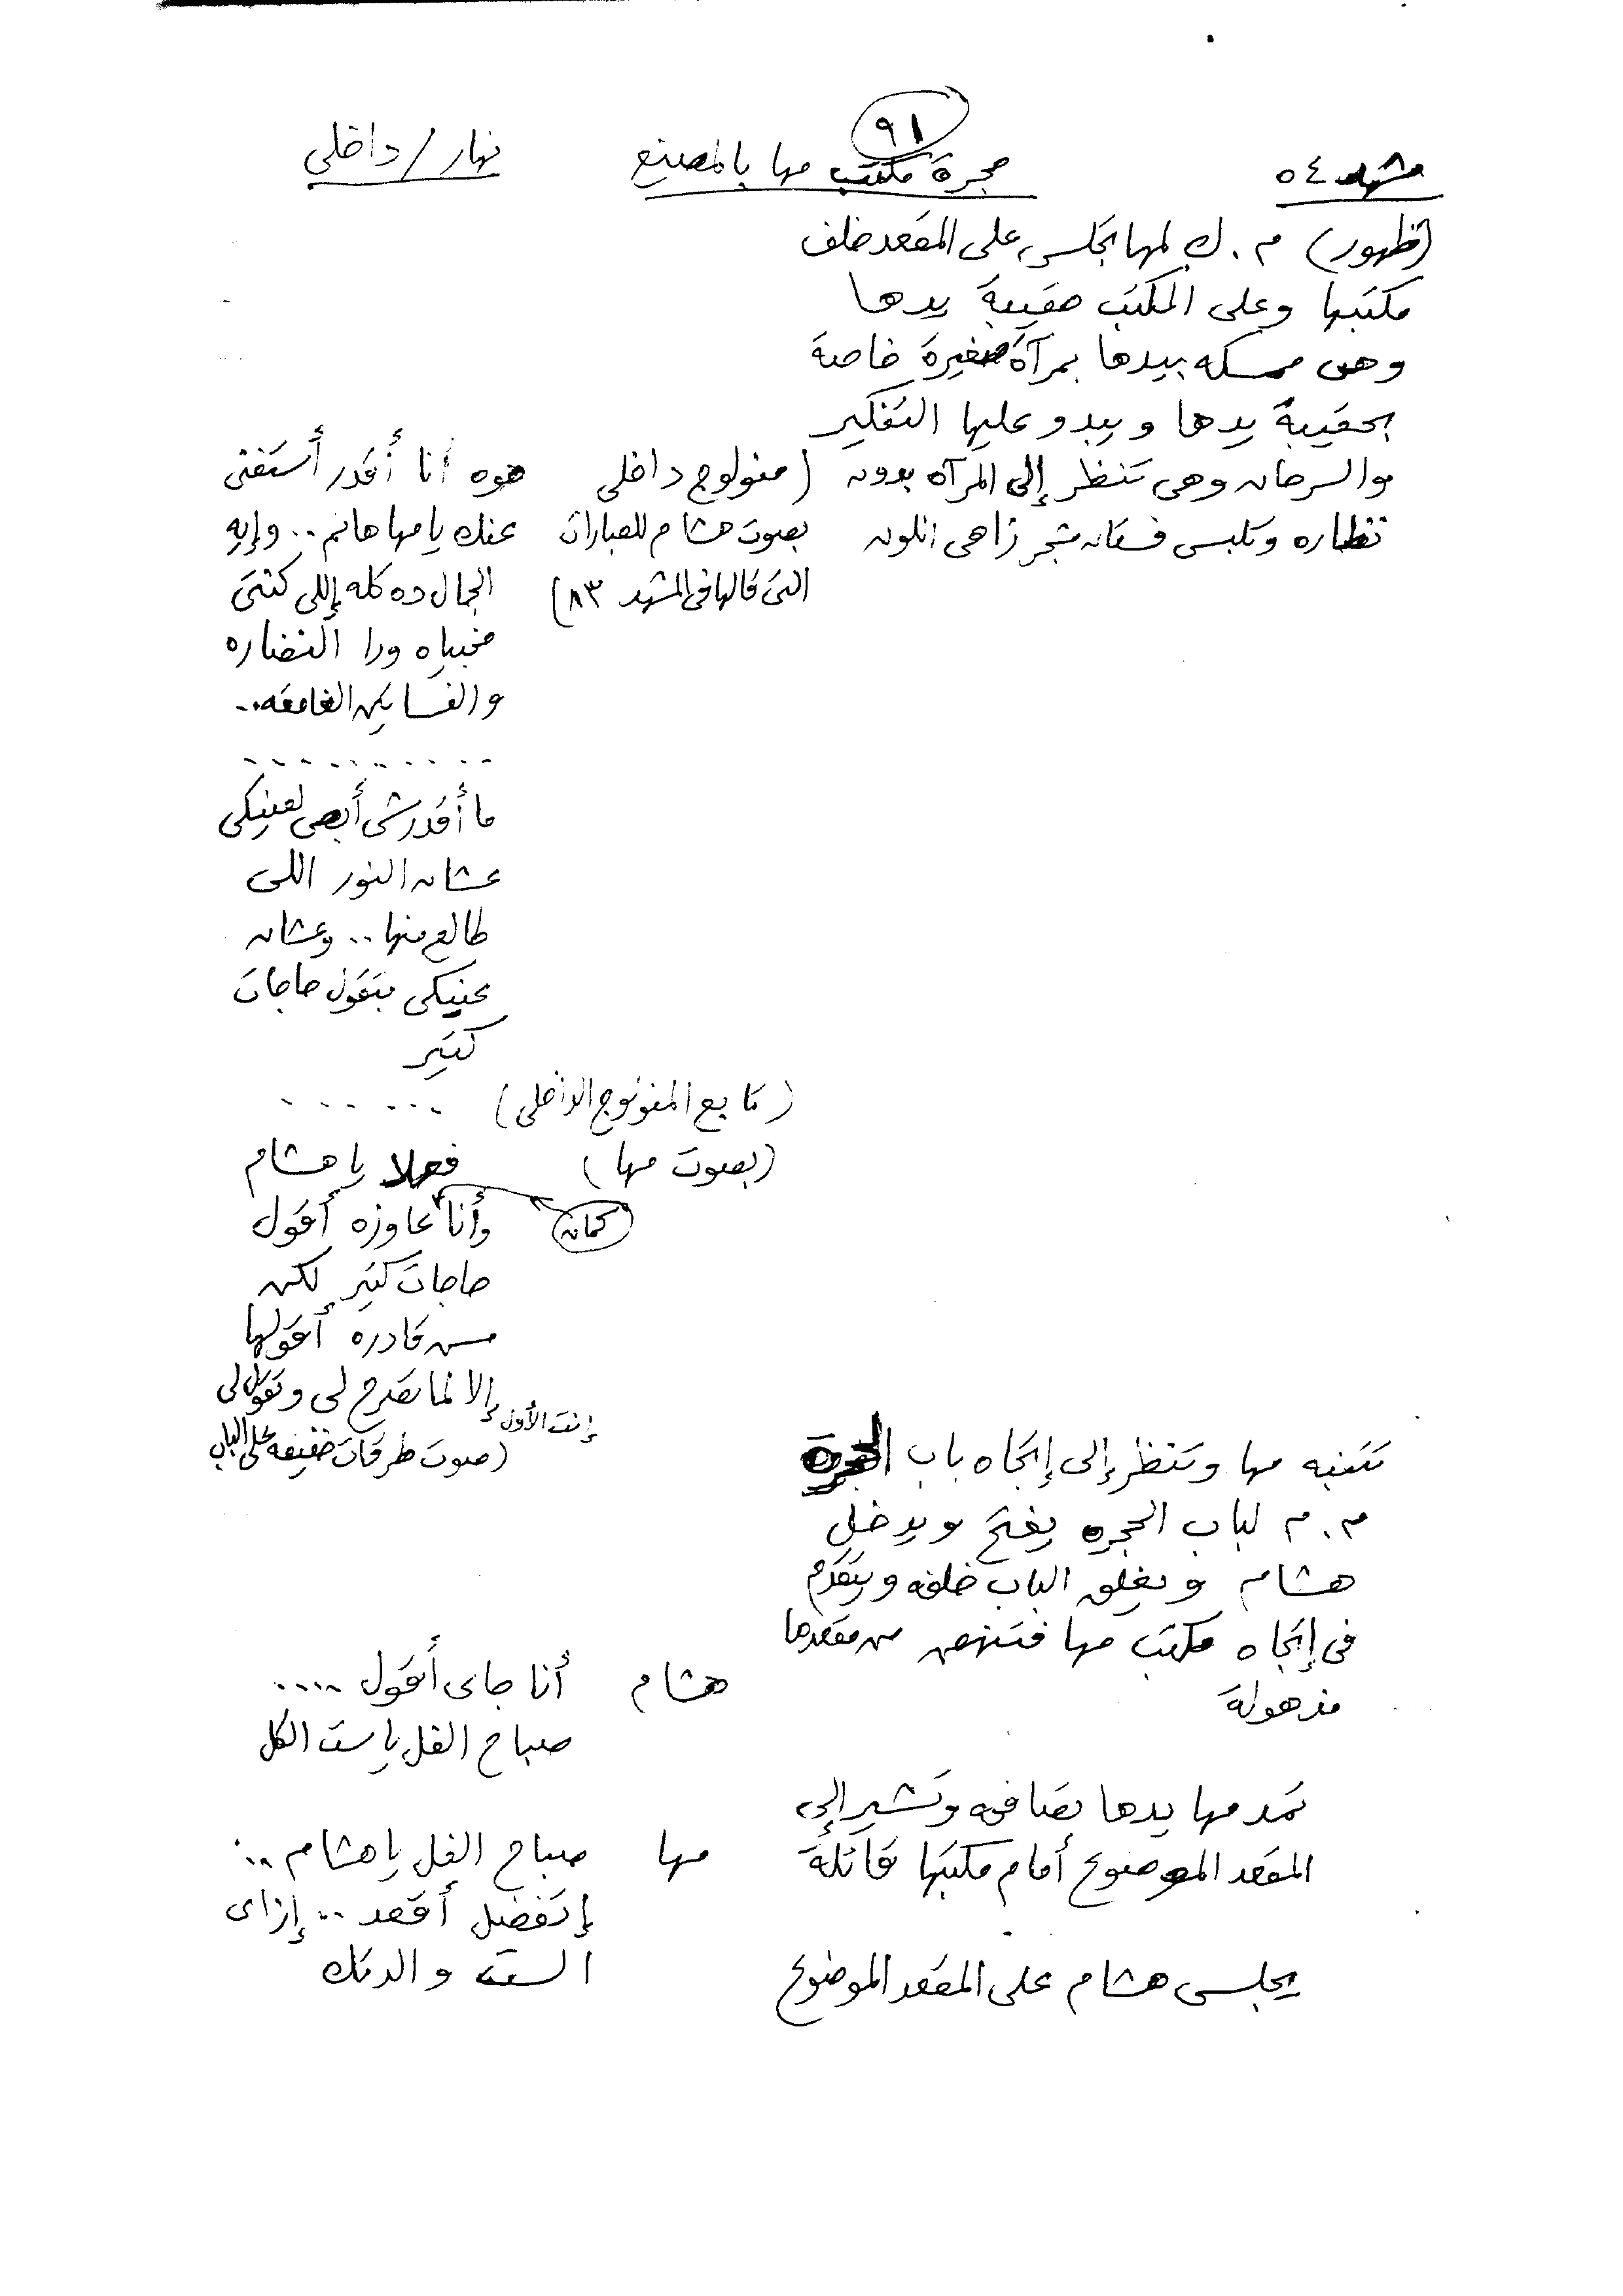 ٩١
مشهد ٥٤ حجرة مكتب مها بالمصنع نهار / داخلى
(ظهور) م . ك لمها تجلس على المقعد خلف
مكتبها وعلى المكتب حقيبة يدها
وهى ممسكه بيدها بمرآة صغيرة خاصة
بحقيبة يدها ويبدو عليها التفكير
والسرحان وهى تنظر إلى المرآه بدون
نظاره وتلبس فستان مشجر زاهى اللون
(منولوج داخلى
بصوت هشام للعبارات
التى قالها فى المشهد ٨٣)
هوه أنا أقدر أستغنى
عنك يا مها هانم .. وإيه
الجمال ده كله إللى كنتى
مخبياه ورا النضاره
والفساتين الغامقه ..
. . . . . . . . . . .
ما أقدرش أبص لعينيكى
عشان النور اللى
طالع منها .. وعشان
عنيكى بتقول حاجات
كتير
(تابع المنولوج الداخلى) . . . . . .
(بصوت مها) فعلا يا هشام
وأنا كمان عاوزه أقول
حاجات كتير لكن
مش قادره أقولها
إلا لما تصرح لى وتقول لى
إنت الأول
(صوت طرقات خفيفه على الباب
تتنبه مها وتنظر إلى إتجاه باب الحجرة
م . م لباب الحجره يفتح ويدخل
هشام ويغلق الباب خلفه ويتقدم
فى إتجاه مكتب مها فتنهض من مقعدها
مذهولة
هشام أنا جاى أقول ....
صباح الفل يا ست الكل
تمد مها يدها تصافحه وتشير إلى
المقعد الموضوع أمام مكتبها قائلة
مها صباح الفل يا هشام ..
إتفضل أقعد .. إزاى
الست والدتك
يجلس هشام على المقعد الموضوع